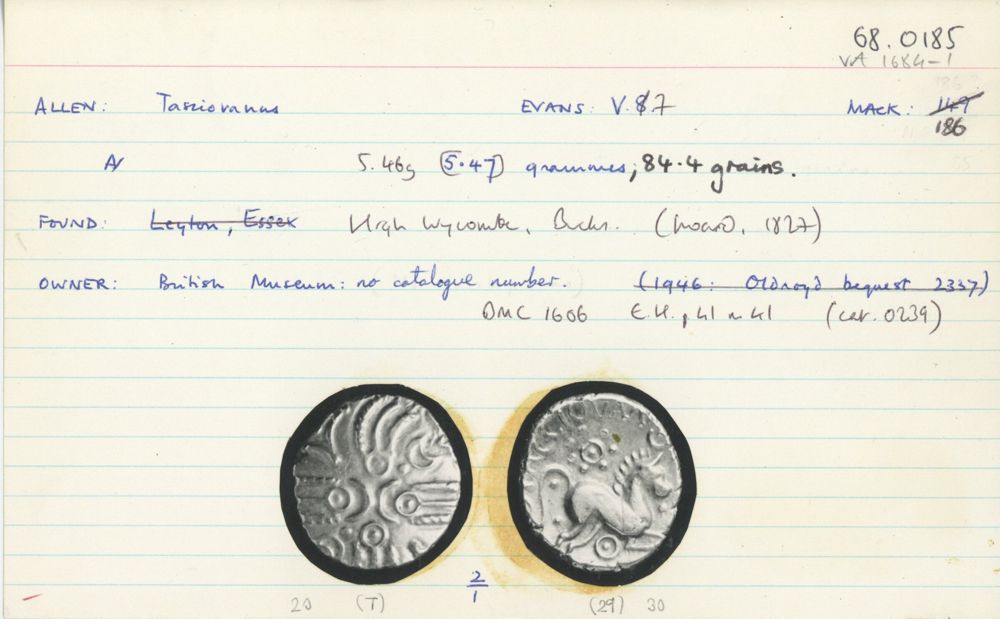 68.0185
VA 1684-1
ALLEN: Tasciovanus EVANS: V.87 MACK: 149
186
AV 5.46g (5.47) grammes; 84.4 grains.
FOUND: Leyton, Essex High Wycombe, Bucks. (hoard, 1827)
OWNER: British Museum: no catalogue number. (1946: Oldroyd bequest 2337)
BMC 1606 E.H., p41 n 41 (cat. 0239)
2
1
20 (T) (29) 30